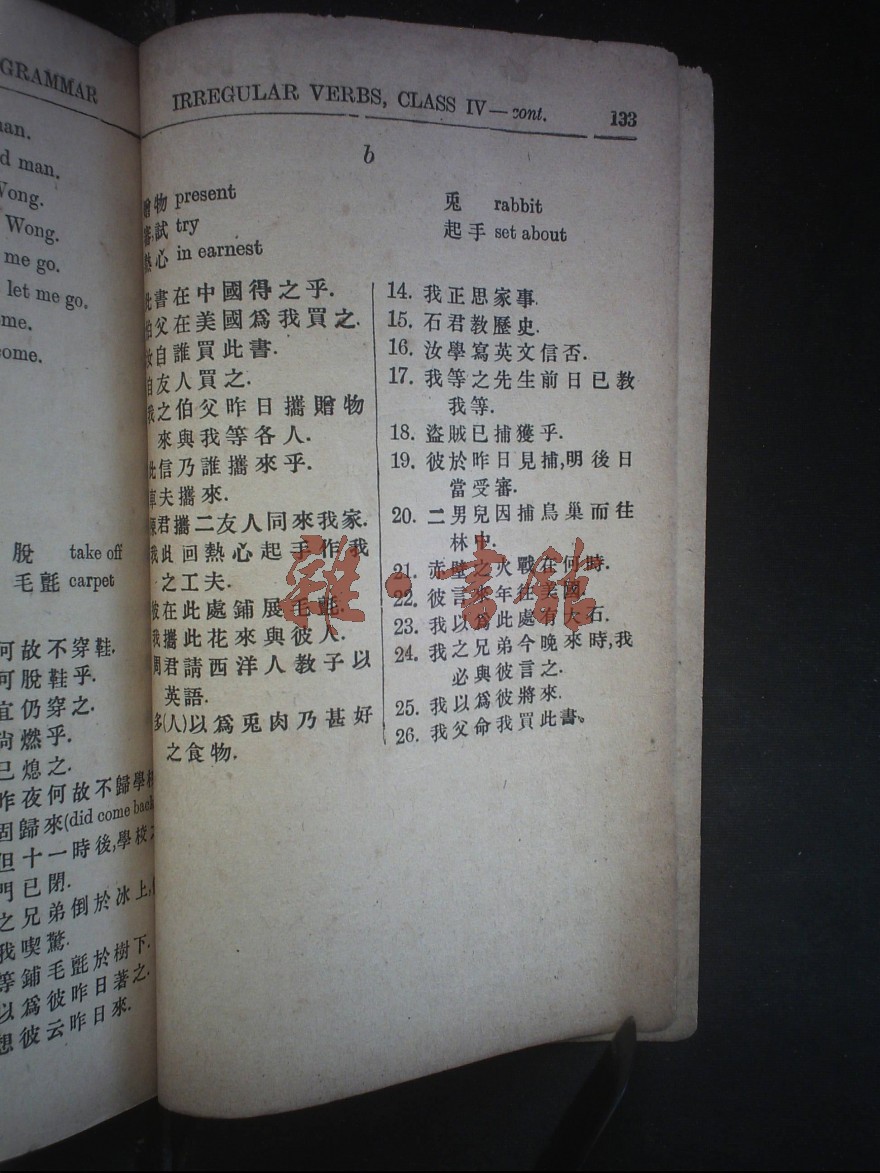 GRAMMAR
man.
d man.
Wong.
Wong.
me go.
let me go.
ome.
come.
脫 take off
毛氈 carpet
何故不穿鞋.
可脫鞋乎.
宜仍穿之.
尚燃乎.
已熄之.
昨夜何故不歸學校
固歸來(did come back
但十一時後,學校之
門已閉.
之兄弟倒於冰上,
我喫驚.
等鋪毛氈於樹下.
以爲彼昨日著之.
想彼云昨日來.
IRREGULAR VERBS, CLASS IV—cont. 133
b
贈物 present
審,試 try
熱心 in earnest
兎 rabbit
起手 set about
此書在中國得之乎.
伯父在美國爲我買之.
汝自誰買此書.
自友人買之.
我之伯父昨日攜贈物
來與我等各人.
此信乃誰攜來乎.
車夫攜來.
陳君攜二友人同來我家.
我此回熱心起手作我
之工夫.
彼在此處鋪展毛氈.
我攜此花來與彼人.
周君請西洋人教子以
英語.
多(人)以爲兎肉乃甚好
之食物.
14. 我正思家事.
15. 石君教歷史.
16. 汝學寫英文信否.
17. 我等之先生前日已教
我等.
18. 盜賊已捕獲乎.
19. 彼於昨日見捕,明後日
當受審.
20. 二男兒因捕鳥巢而往
林中.
21. 赤壁之火戰在何時.
22. 彼言來年往美國.
23. 我以爲此處有大石.
24. 我之兄弟今晚來時,我
必與彼言之.
25. 我以爲彼將來.
26. 我父命我買此書。
雜·書館